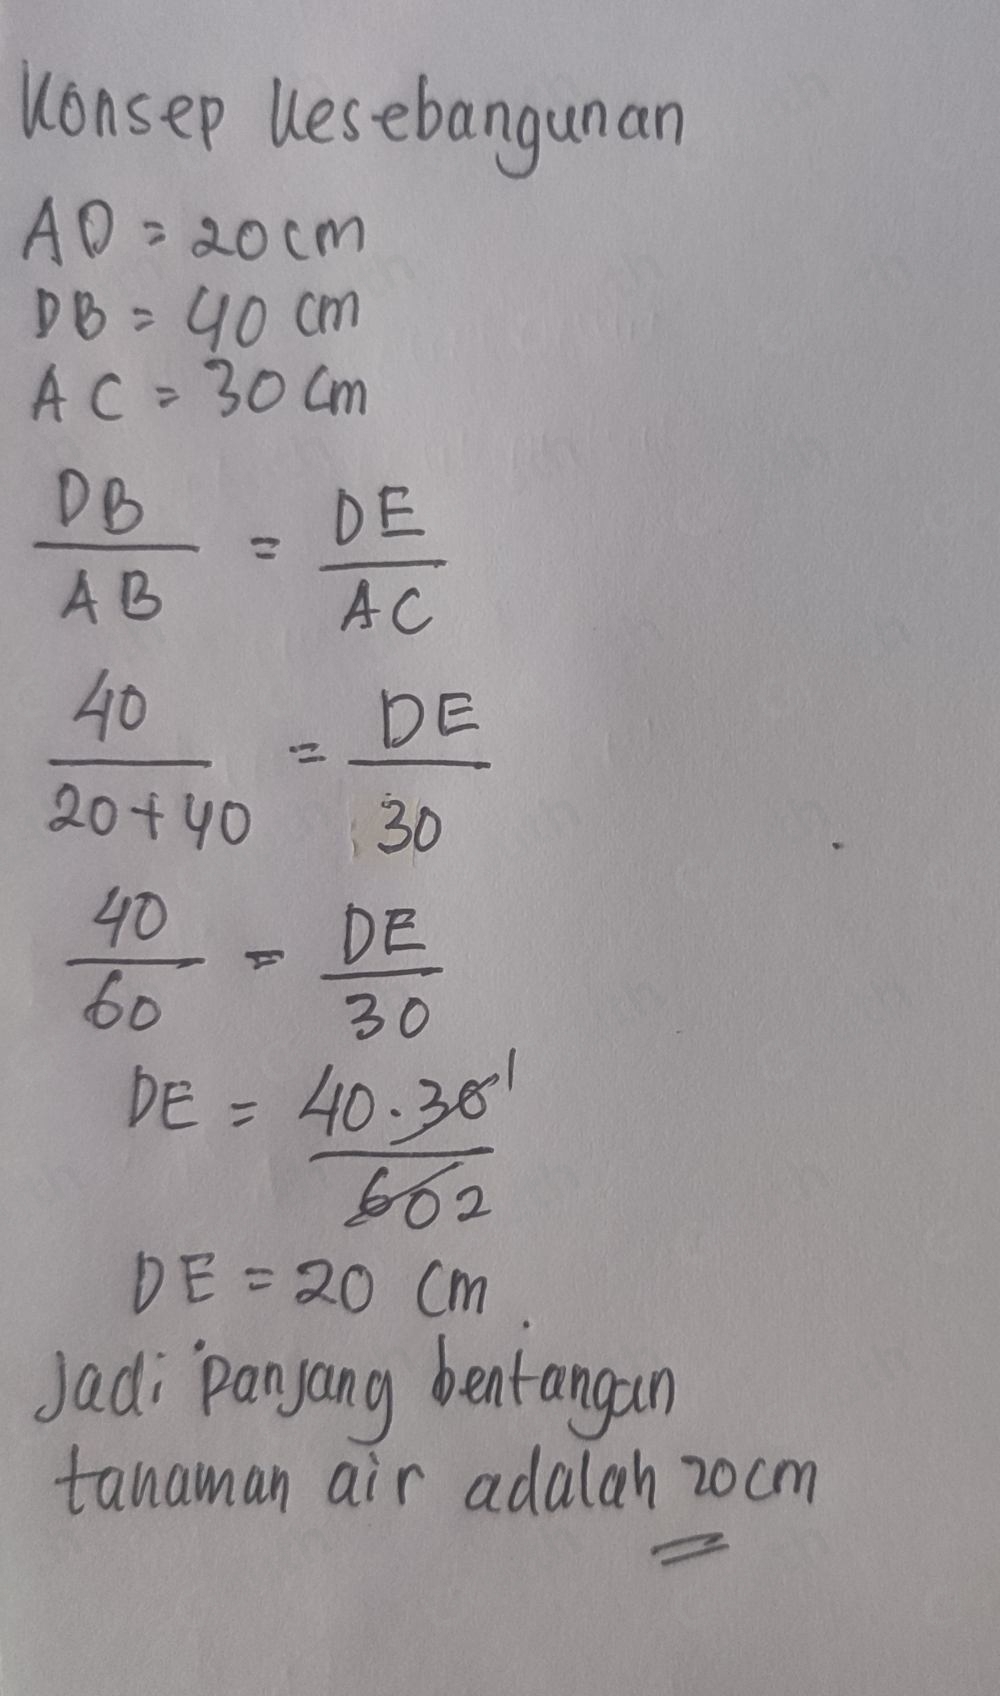 Konsep Kesebangunan
AD = 20 cm
DB = 40 cm
AC = 30 cm
DB/AB = DE/AC
40/20+40 = DE/30
40/60 = DE/30
DE = 40.30 1/60 2
DE = 20 cm.
Jadi panjang bentangan
tanaman air adalah 20 cm